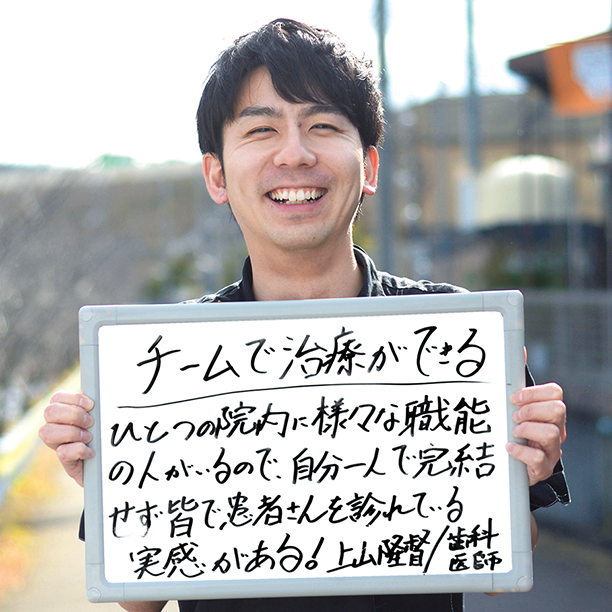 チームで治療ができる
ひとつの院内に様々な職能
の人がいるので、自分一人で完結
せず皆で、患者さんを診れている
実感がある！上山隆督/歯科医師